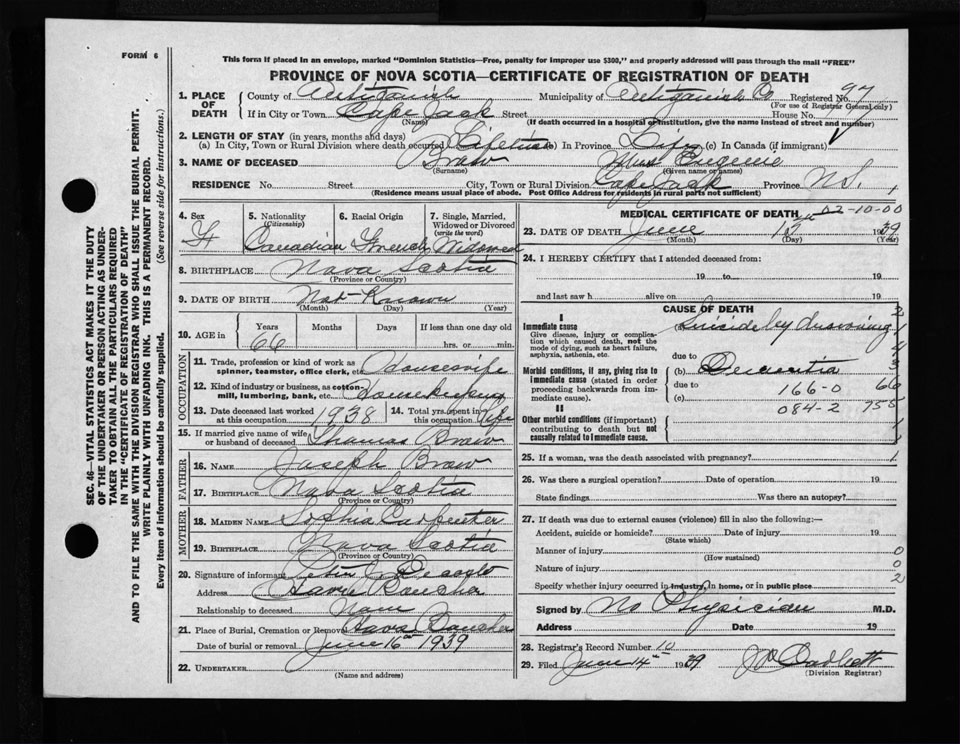 FORM 6
This form if placed in an envelope, marked “Dominion Statistics—Free, penalty for improper use $300,” and properly addressed will pass through the mail “FREE”
PROVINCE OF NOVA SCOTIA—CERTIFICATE OF REGISTRATION OF DEATH
SEC. 46—VITAL STATISTICS ACT MAKES IT THE DUTY
OF THE UNDERTAKER OR PERSON ACTING AS UNDER-
TAKER TO OBTAIN ALL THE PARTICULARS REQUIRED
IN THE “CERTIFICATE OF REGISTRATION OF DEATH”
AND TO FILE THE SAME WITH THE DIVISION REGISTRAR WHO SHALL ISSUE THE BURIAL PERMIT.
WRITE PLAINLY WITH UNFADING INK. THIS IS A PERMANENT RECORD.
Every item of information should be carefully supplied. (See reverse side for instructions.)
1. PLACE OF DEATH
County of Antigonish Municipality of Antigonish Co Registered No. 97
(For use of Registrar General only)
If in City or Town Cape Jack Street House No.
(Name) (If death occurred in a hospital or institution, give the name instead of street and number)
2. LENGTH OF STAY (in years, months and days)
(a) In City, Town or Rural Division where death occurred Lifetime (b) In Province Life (c) In Canada (if immigrant)
3. NAME OF DECEASED Braw Mrs Eugenie
(Surname) (Given name or names)
RESIDENCE No. Street City, Town or Rural Division Cape Jack Province N.S. 1
(Residence means usual place of abode. Post Office Address for residents in rural parts not sufficient)
4. Sex F
5. Nationality (Citizenship) Canadian
6. Racial Origin French
7. Single, Married, Widowed or Divorced (write the word) Widowed
8. BIRTHPLACE Nova Scotia
(Province or Country)
9. DATE OF BIRTH Not Known
(Month) (Day) (Year)
10. AGE in Years 66 Months Days If less than one day old hrs. or min.
OCCUPATION
11. Trade, profession or kind of work as spinner, teamster, office clerk, etc. Housewife
12. Kind of industry or business, as cotton-mill, lumbering, bank, etc. Housekeeping
13. Date deceased last worked at this occupation 1938
14. Total yrs. spent in this occupation Life
15. If married give name of wife or husband of deceased Thomas Braw
FATHER
16. NAME Joseph Braw
17. BIRTHPLACE Nova Scotia
(Province or Country)
MOTHER
18. MAIDEN NAME Sophia Carpenter
19. BIRTHPLACE Nova Scotia
(Province or Country)
20. Signature of informant
Address Havre Boucher
Relationship to deceased
21. Place of Burial, Cremation or Removal Havre Boucher
Date of burial or removal June 16th 1939
22. UNDERTAKER
(Name and address)
MEDICAL CERTIFICATE OF DEATH 02-10-00
23. DATE OF DEATH June 1939
(Month) (Day) (Year)
24. I HEREBY CERTIFY that I attended deceased from:
19 to 19
and last saw h alive on 19
CAUSE OF DEATH
I
Immediate cause Suicide by drowning
Give disease, injury or complication which caused death, not the mode of dying, such as heart failure, asphyxia, asthenia, etc.
due to
Morbid conditions, if any, giving rise to immediate cause (stated in order proceeding backwards from immediate cause).
(b) Dementia
due to 166-0 66
(c) 084-2 755
II
Other morbid conditions (if important) contributing to death but not causally related to immediate cause.
25. If a woman, was the death associated with pregnancy? 1
26. Was there a surgical operation? Date of operation 19
State findings Was there an autopsy?
27. If death was due to external causes (violence) fill in also the following:—
Accident, suicide or homicide? Date of injury 19
(State which)
Manner of injury 0
(How sustained)
Nature of injury 0
Specify whether injury occurred in industry, in home, or in public place 2
Signed by No Physician M.D.
Address Date 19
28. Registrar's Record Number 10
29. Filed June 14th 1939
(Division Registrar)